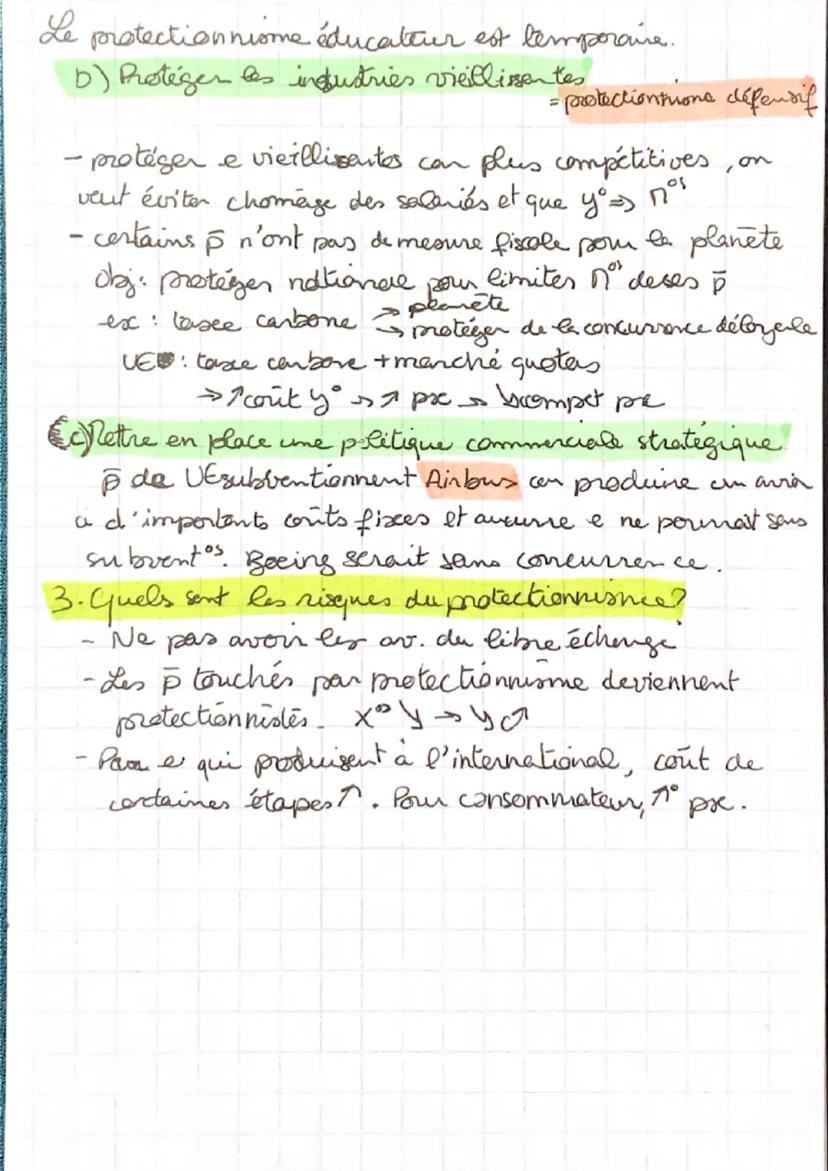 Le protectionnisme éducateur est temporaire.
b) Protéger les industries vieillissentes
= protectionnisme défensif
- protéger e vieillissantes car plus compétitives, on
veut éviter chomage des salariés et que y° => M°s
- certains p̄ n'ont pas de mesure fiscale pour la planète
Obj: protéger nationale pour limites M°s de ses p̄
ex : taxe carbone → planète
→ protéger de la concurrence déloyale
UE : taxe carbone + marché quotas
→ ↑ coût y° → ↗ px → ↘ compet px
c) Mettre en place une politique commerciale stratégique
p̄ de UE subventionnent Airbus car produire un avion
a d'importants coûts fixes et aucune e ne pourrait sans
subvent°s. Boeing serait sans concurrence.
3. Quels sont les risques du protectionnisme?
- Ne pas avoir les av. du libre échange
- Les p̄ touchés par protectionnisme deviennent
protectionnistes. X° ↘ → y ↗
- Pour e qui produisent à l'international, coût de
certaines étapes ↗. Pour consommateur, ↗° px.